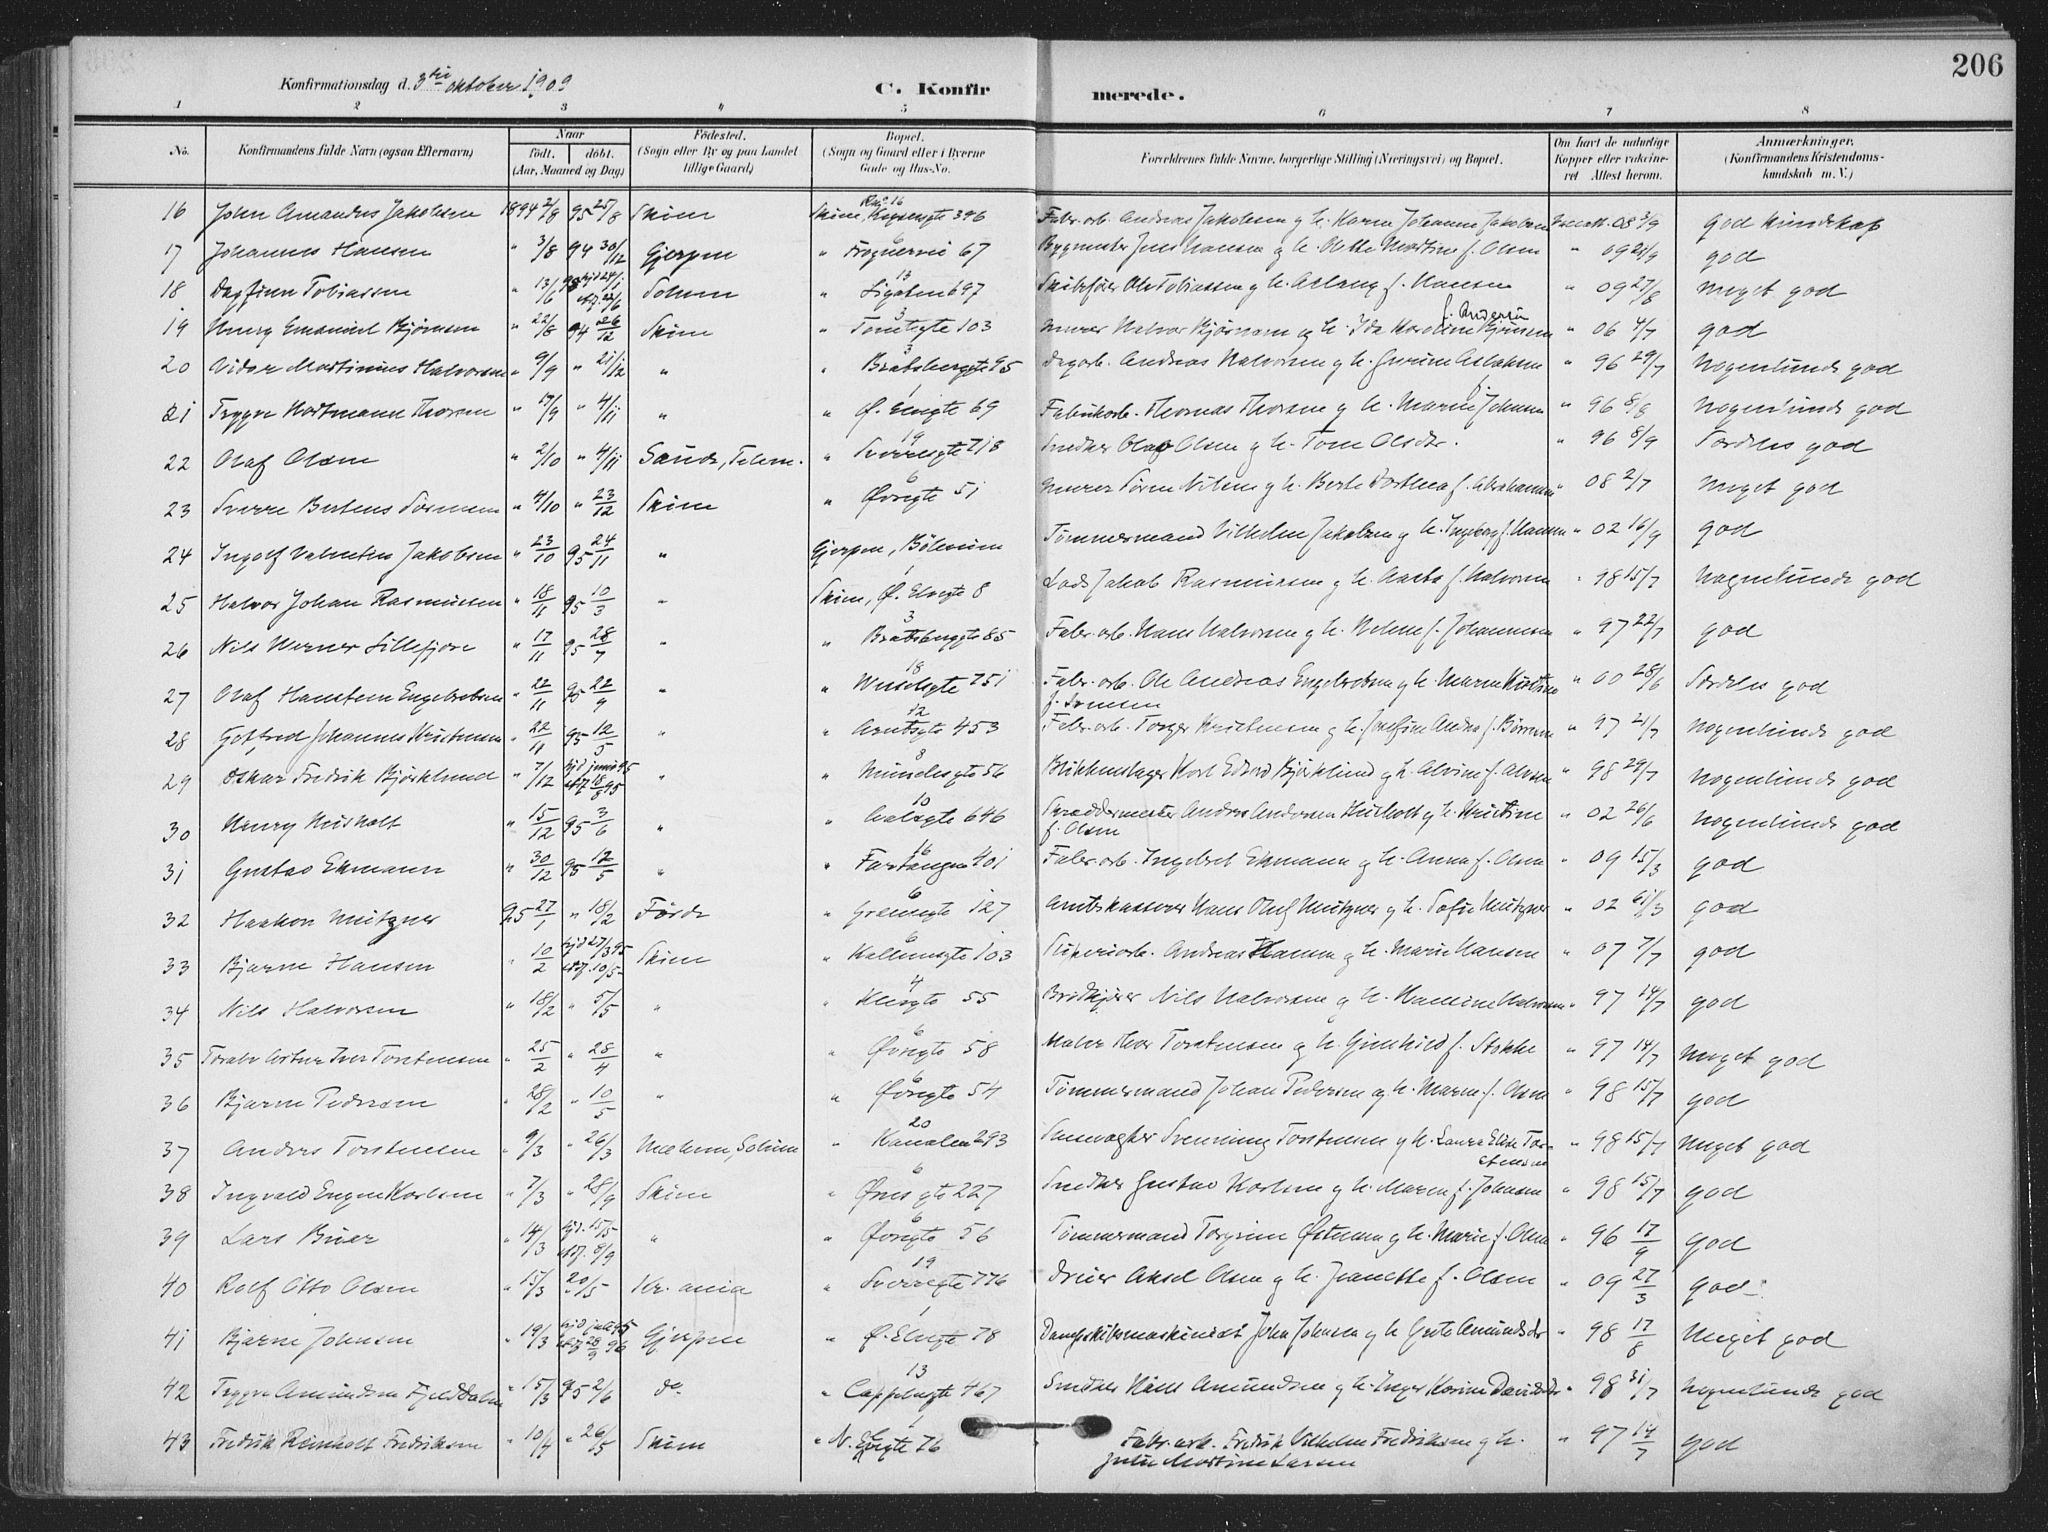 206
Konfirmationsdag d. 3die oktober 1909
C. Konfirmerede.
1 2 3 4 5 6 7 8
No. Konfirmandens fulde Navn (ogsaa Efternavn) Naar født. døbt. (Aar, Maaned og Dag) Fødested. (Sogn eller By og paa Landet tillige Gaard) Bopæl. (Sogn og Gaard eller i Byerne Gade og Hus-No. Forældrenes fulde Navne, borgerlige Stilling (Næringsvei) og Bopæl. Om havt de naturlige Kopper eller vaccineret Attest herom. Anmærkninger. (Konfirmandens Kristendomskundskab m. V.)
16 John Amandus Jakobsen 1894 2/8 95 25/8 Skien Skien, 346 Fabr. arb. Andreas Jakobsen g h. Karen Johanne Jakobsen 08 3/9 god kundskap
17 Johannes Hansen " 3/8 94 30/12 Gjerpen " 67 Bygmester Jens Hansen g h. Mortine f. Olsen " 09 21/9 god
18 Dagfinn Tobiassen " 13/6 Solum " 697 Skibsfører Ole Tobiassen g h. Aslaug f. Hansen " 09 27/8 Meget god
19 Henry Emanuel Bjørnsen " 22/8 94 26/12 Skien " 3 103 Murer Halvor Bjørnsen g h. Ida Karoline Bjørnsen f. Andersen " 06 4/7 god
20 Vidar Martinius Halvorsen " 9/9 " 21/12 " " 3 Bratsberggte 95 Dagarb. Andreas Halvorsen g h. Gurine Aslaksen " 96 29/7 Nogenlunde god
21 Trygve Hartmann Thorsen " 17/9 " 4/11 " " 1 Ø. Elvegte 69 Fabrikarb. Thomas Thorsen g h. Marie f. Johnsen " 96 8/9 Nogenlunde god
22 Olaf Olsen " 2/10 " 4/11 Saude, Telem. " 19 Sverresgte 718 Snedker Olaf Olsen g h. Tone Olsdtr. " 96 8/9 Særdeles god
23 Sverre Sørensen " 4/10 " 23/12 Skien " 6 Øvregte 51 Murer Søren Nilsen g h. Berte Dorthea f. Abrahamsen " 08 2/7 Meget god
24 Ingolf Valentin Jakobsen " 23/10 95 24/11 " Gjerpen, Bøleveien Tømmermand Vilhelm Jakobsen g h. Ingeborg f. Hansen " 02 16/9 god
25 Halvor Johan Rasmussen " 18/11 95 10/3 " Skien, Ø. Elvegte 8 Jakob Rasmussen g h. f. Halvorsen " 98 15/7 Nogenlunde god
26 Nils Werner Lillefjære " 17/11 95 28/7 " " 3 Bratsberggte 85 Fabr. arb. Hans Halvorsen g h. Helene f. Johannesen " 97 22/7 god
27 Olaf Hansteen Engebretsen " 22/11 95 22/9 " " 18 Wesselsgte 751 Fabr. arb. Ole Andreas Engebretsen g h. Maren Kirstine f. Svensen " 00 28/6 Særdeles god
28 Gotfred Johannes Kristensen " 22/11 95 12/5 " " 12 Arentsgte 453 Fabr. arb. Torger Kristensen g h. Josefine Andrea f. Børresen " 97 21/7 Nogenlunde god
29 Oskar Fredrik Bjørklund " 7/12 hjd juni 95 stf 18/8 95 " " 8 Munkesgte 56 Blikkenslager Karl Edvard Bjørklund g h. Alvine f. Olsen " 98 29/7 Nogenlunde god
30 Henry Husholt " 15/12 95 3/6 " " 10 646 Skræddermester Andreas Andersen Husholt g h. Kristine f. Olsen " 02 26/6 Nogenlunde god
31 Gustav Ekmann " 30/12 95 12/5 " " 16 401 Fabr. arb. Ingebret Ekmann g h. Anna f. Olsen " 09 15/3 god
32 Haakon Mützner 95 27/1 " 18/2 Førde " 6 127 Amtskasserer Hans Oluf Mützner g h. Sofie Mützner " 02 god
33 Bjarne Hansen " 10/2 hjd 27/3 95 stf. 10/5 Skien " 6 103 Andreas Hansen g h. Marie Hansen " 07 7/7 god
34 Nils Halvorsen " 18/2 " 5/5 " " 4 55 Brødkjører Nils Halvorsen g h. Halvorsen " 97 14/7 god
35 Toralv Artur Iver Torstensen " 25/2 " 28/4 " " 6 Øvregte 58 Maler Iver Torstensen g h. Gunhild f. Stokke " 97 14/7 Meget god
36 Bjarne Pedersen " 28/2 " 10/5 " " 6 Øvregte 54 Tømmermand Johan Pedersen g h. Maren f. Olsen " 98 15/7 god
37 Anders Torstensen " 9/3 " 26/3 Mælum, Solum " 20 Kanalen 293 Slusevogter Svenning Torstensen g h. Laura Elise Torstensen " 98 15/7 Meget god
38 Ingvald Eugen Karlsen " 7/3 " 28/9 Skien " 6 227 Snedker Gustav Karlsen g h. Maren f. Johnsen " 98 15/7 god
39 Lars Buer " 14/3 hjd. 15/5 stf. 8/9 " " 6 Øvregte 56 Tømmermand Torgrim g h. Marie f. Olsen " 96 17/9 god
40 Rolf Otto Olsen " 15/3 20/5 Kr. ania " 19 Sverresgte 776 Dreier Aksel Olsen g h. Jeanette f. Olsen " 09 27/3 god
41 Bjarne Johnsen " 19/3 hjd juli 95 stf 28/9 96 Gjerpen " 1 Ø. Elvegte 78 Dampskibsmaskinist John Johnsen g h Grete Amundsdtr " 98 17/8 Meget god
42 Trygve Amundsen Fjelldalen " 15/3 95 2/6 do " 13 Cappelensgte 467 Snedker Amundsen g h. Inger Karine Davidsdtr " 98 31/7 Nogenlunde god
43 Fredrik Reinholt Fredriksen " 10/4 " 26/5 Skien " 1 N. Elvegte 76 Fabr. arb. Fredrik Vilhelm Fredriksen g h. Julie Mortine Larsen " 97 14/7 god